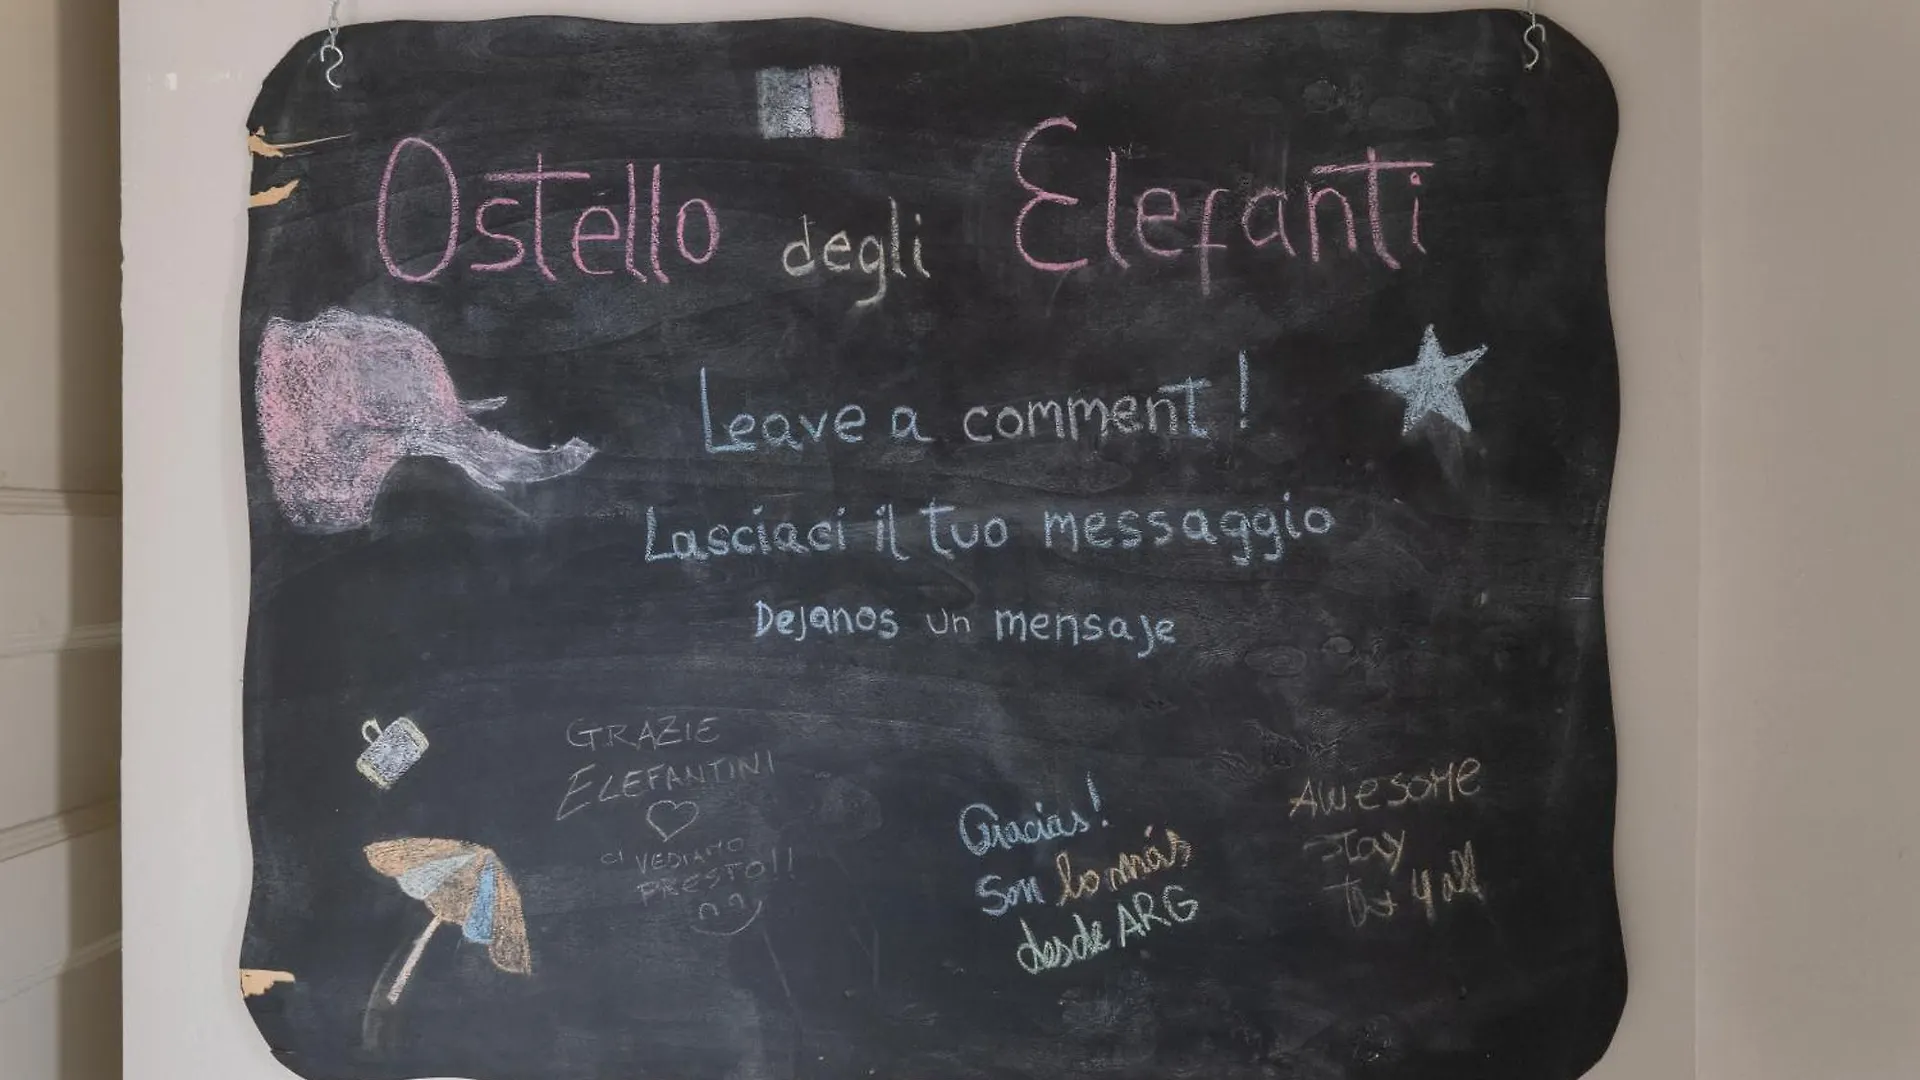 Ostello degli Elefanti
Leave a comment!
Lasciaci il tuo messaggio
Dejanos un mensaje
GRAZIE
ELEFANTINI
CI VEDIAMO
PRESTO!!
Gracias!
Son lo más
desde ARG
AWESOME
stay
y'all